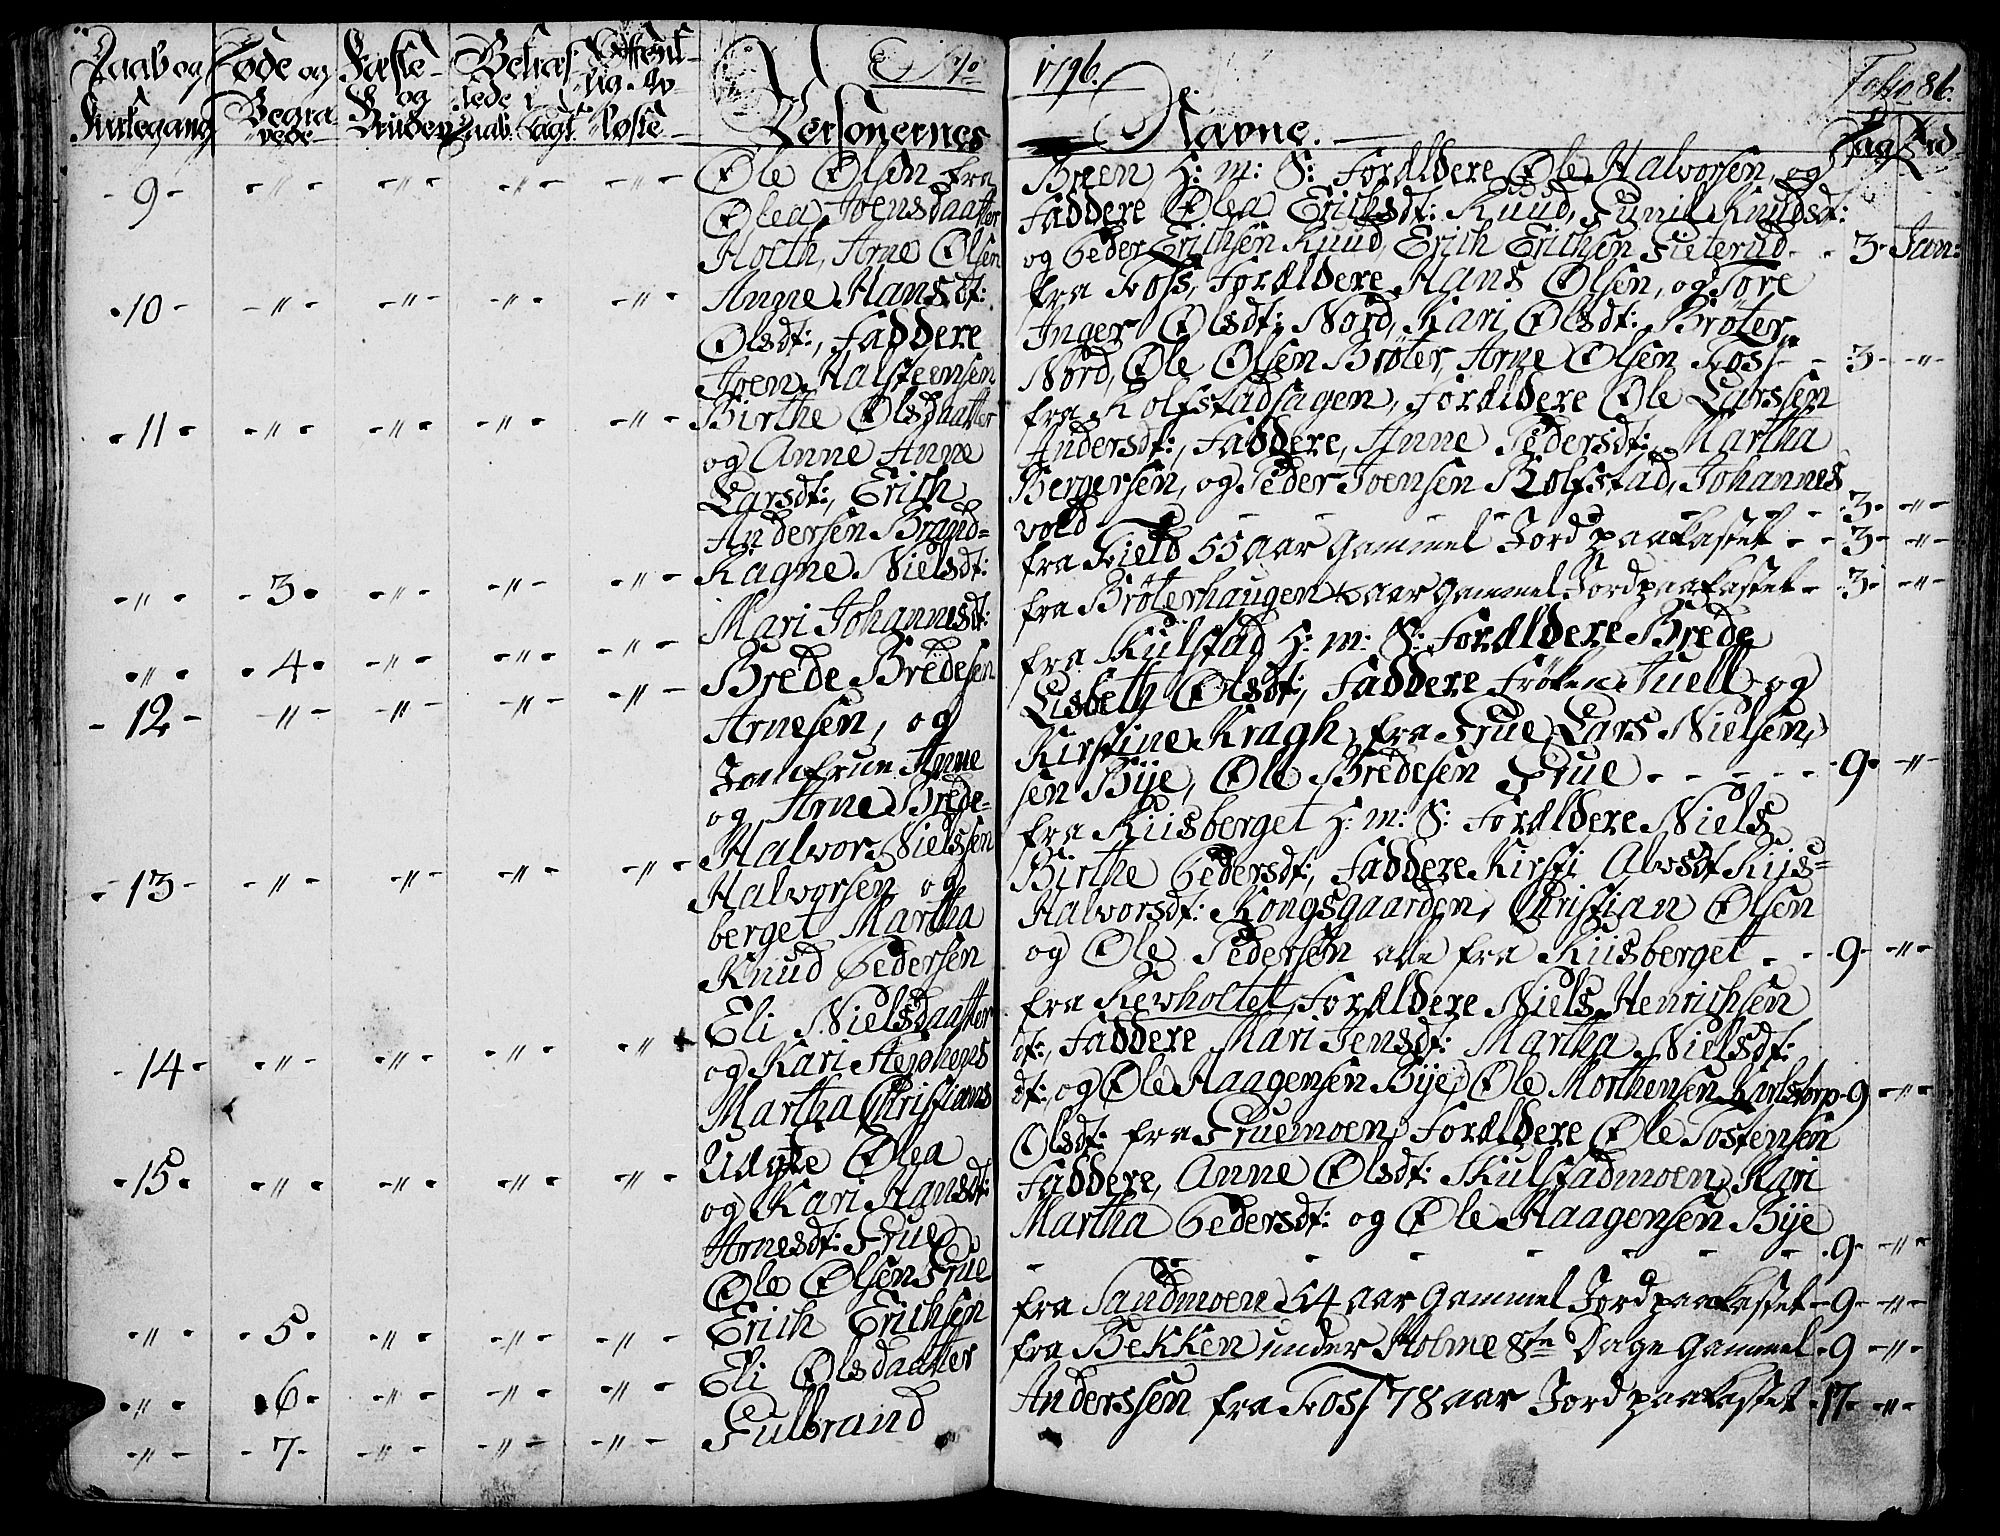 Daab og Døde og Fæste- Betræf Offentl-
Kirkegang Begravede og Bruder lede i Daab. Dagt. lig. Afløste
Ao 1796. Folio 86.
Personernes Navne. Dag Aed
9 Ole Olsen fra Breen, H: m: S: Forældere Ole Halvorsen, og
Olea Joensdaatter Faddere Olea Erichsdt: Ruud, Gunil Knudsdt:
Holth, Arne Olsen og Peder Erichsen Ruud, Erich Erichsen Sieterud 3 Jan:
10 Anne Hansdt: fra Foss, Forældere Hans Olsen, og Tore
Olsdt:, Faddere Inger Olsdt: Nord, Kari Olsdt: Brøter,
Joen Halsteensen Nord, Ole Olsen Brøter, Arne Olsen Foss 3 "
11 Birthe Olsdaatter fra Rolfstadsagen, Forældere Ole Larssen
og Anne Anne Andersdt:, Faddere, Anne Pedersdt:, Martha
Larsdt:, Erich Bergersen, og Peder Joensen Rolfstad, Johannes
Andersen Brand= vold 3 "
" 3 Ragne Nielsdt: fra Field 55 aar Gammel Jord paakastet 3 "
" 4 Mari Johannesdt: fra Brøterhaugen aar Gammel Jord paakastet 3 "
12 Brede Bredesen fra Skulstad H: m: S: Forældere Brede
Arnesen, og Lisbeth Olsdt:, Faddere Frøken Juell og
Jomfrue Anne Kirstine Kragh, fra Grue, Lars Nielsen,
og Arne Brede= sen Bye, Ole Bredesen Grue 9 "
13 Halvor Nielssen fra Kiisberget H: m: S: Forældere Niels
Halvorsen og Birthe Pedersdt:, Faddere Kirsti Alvsdt Kiis=
berget Martha Halvorsdt: Kongsgaarden, Christian Olsen
Knud Pedersen og Ole Pedersen alle fra Kiisberget 9 "
14 Eli Nielsdaatter fra Kewholtet, Forældere Niels Henrichsen
og Kari Stephens dt:, Faddere Mari Jensdt: Martha Nielsdt:
Martha Christians dt:, og Ole Haagensen Bye, Ole Morthensen Karlstorp 9 "
15 Uægte Olea Olsdt: fra Gruemoen, Forældere Ole Tostensen
og Kari Hansdt: Faddere, Anne Olsdt: Skulstadmoen, Kari
Arnesdt: Grue Martha Pedersdt: og Ole Haagensen Bye
Ole Olsen Grue 9 "
" 5 Erich Erichsen fra Sandmoen 54 aar Gammel Jord paakastet 9 "
" 6 Eli Olsdaatter fra Bekken under Holme 8te Dage Gammel 9 "
" 7 Gulbrand Anderssen fra Foss 78 aar Jord paakastet 17 "